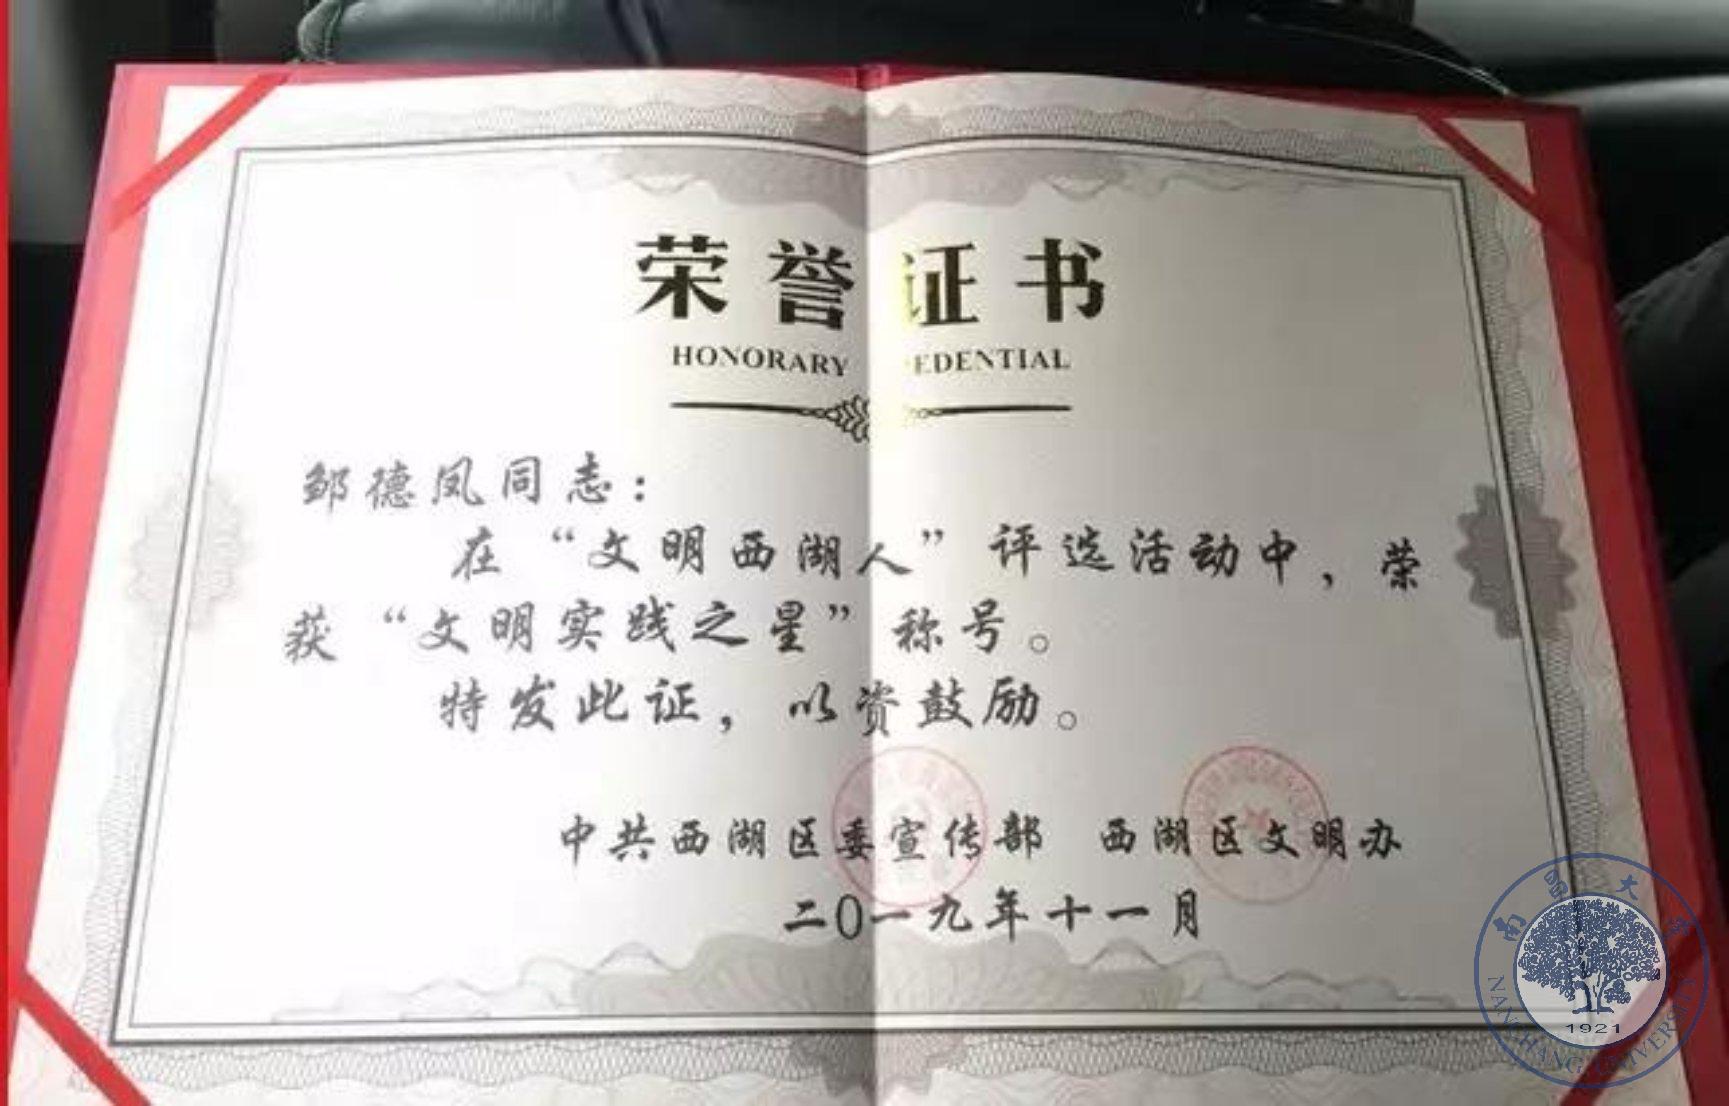 荣誉证书
HONORARY EDENTIAL
邹德凤同志：
在“文明西湖人”评选活动中，荣
获“文明实践之星”称号。
特发此证，以资鼓励。
中共西湖区委宣传部 西湖区文明办
二〇一九年十一月
南昌大学
1921
NANCHANG UNIVERSITY